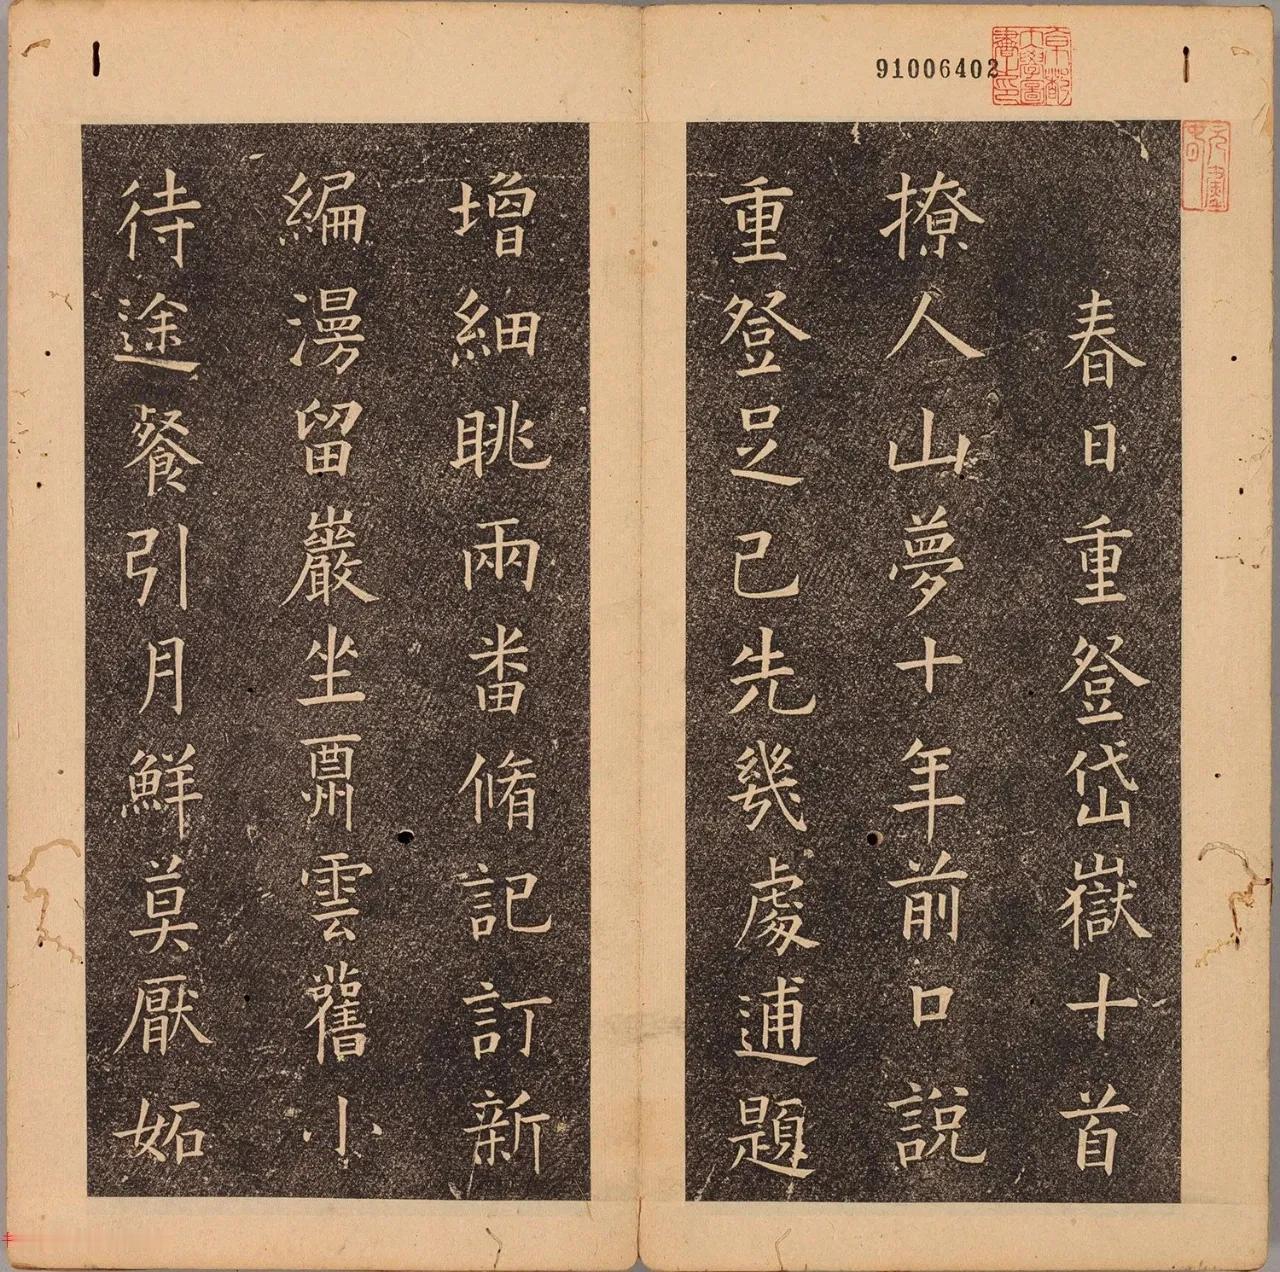 91006402
京都大學圖書之印
春日重登岱嶽十首
撩人山夢十年前口說
重登足已先幾處逋題
增細眺兩番脩記訂新
編漫留巖坐酈雲舊小
待途餐引月鮮莫厭妬